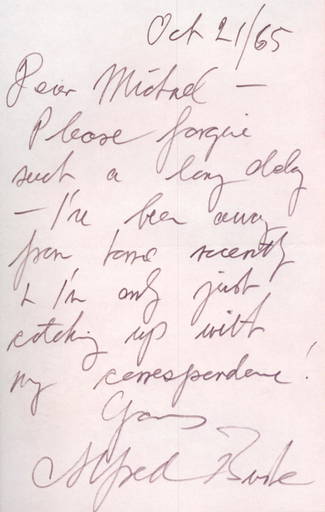 Oct 21/65
Dear Michael —
Please forgive
such a long delay
— I've been away
from home recently
& I'm only just
catching up with
my correspondence!
Yours
Alfred Burke